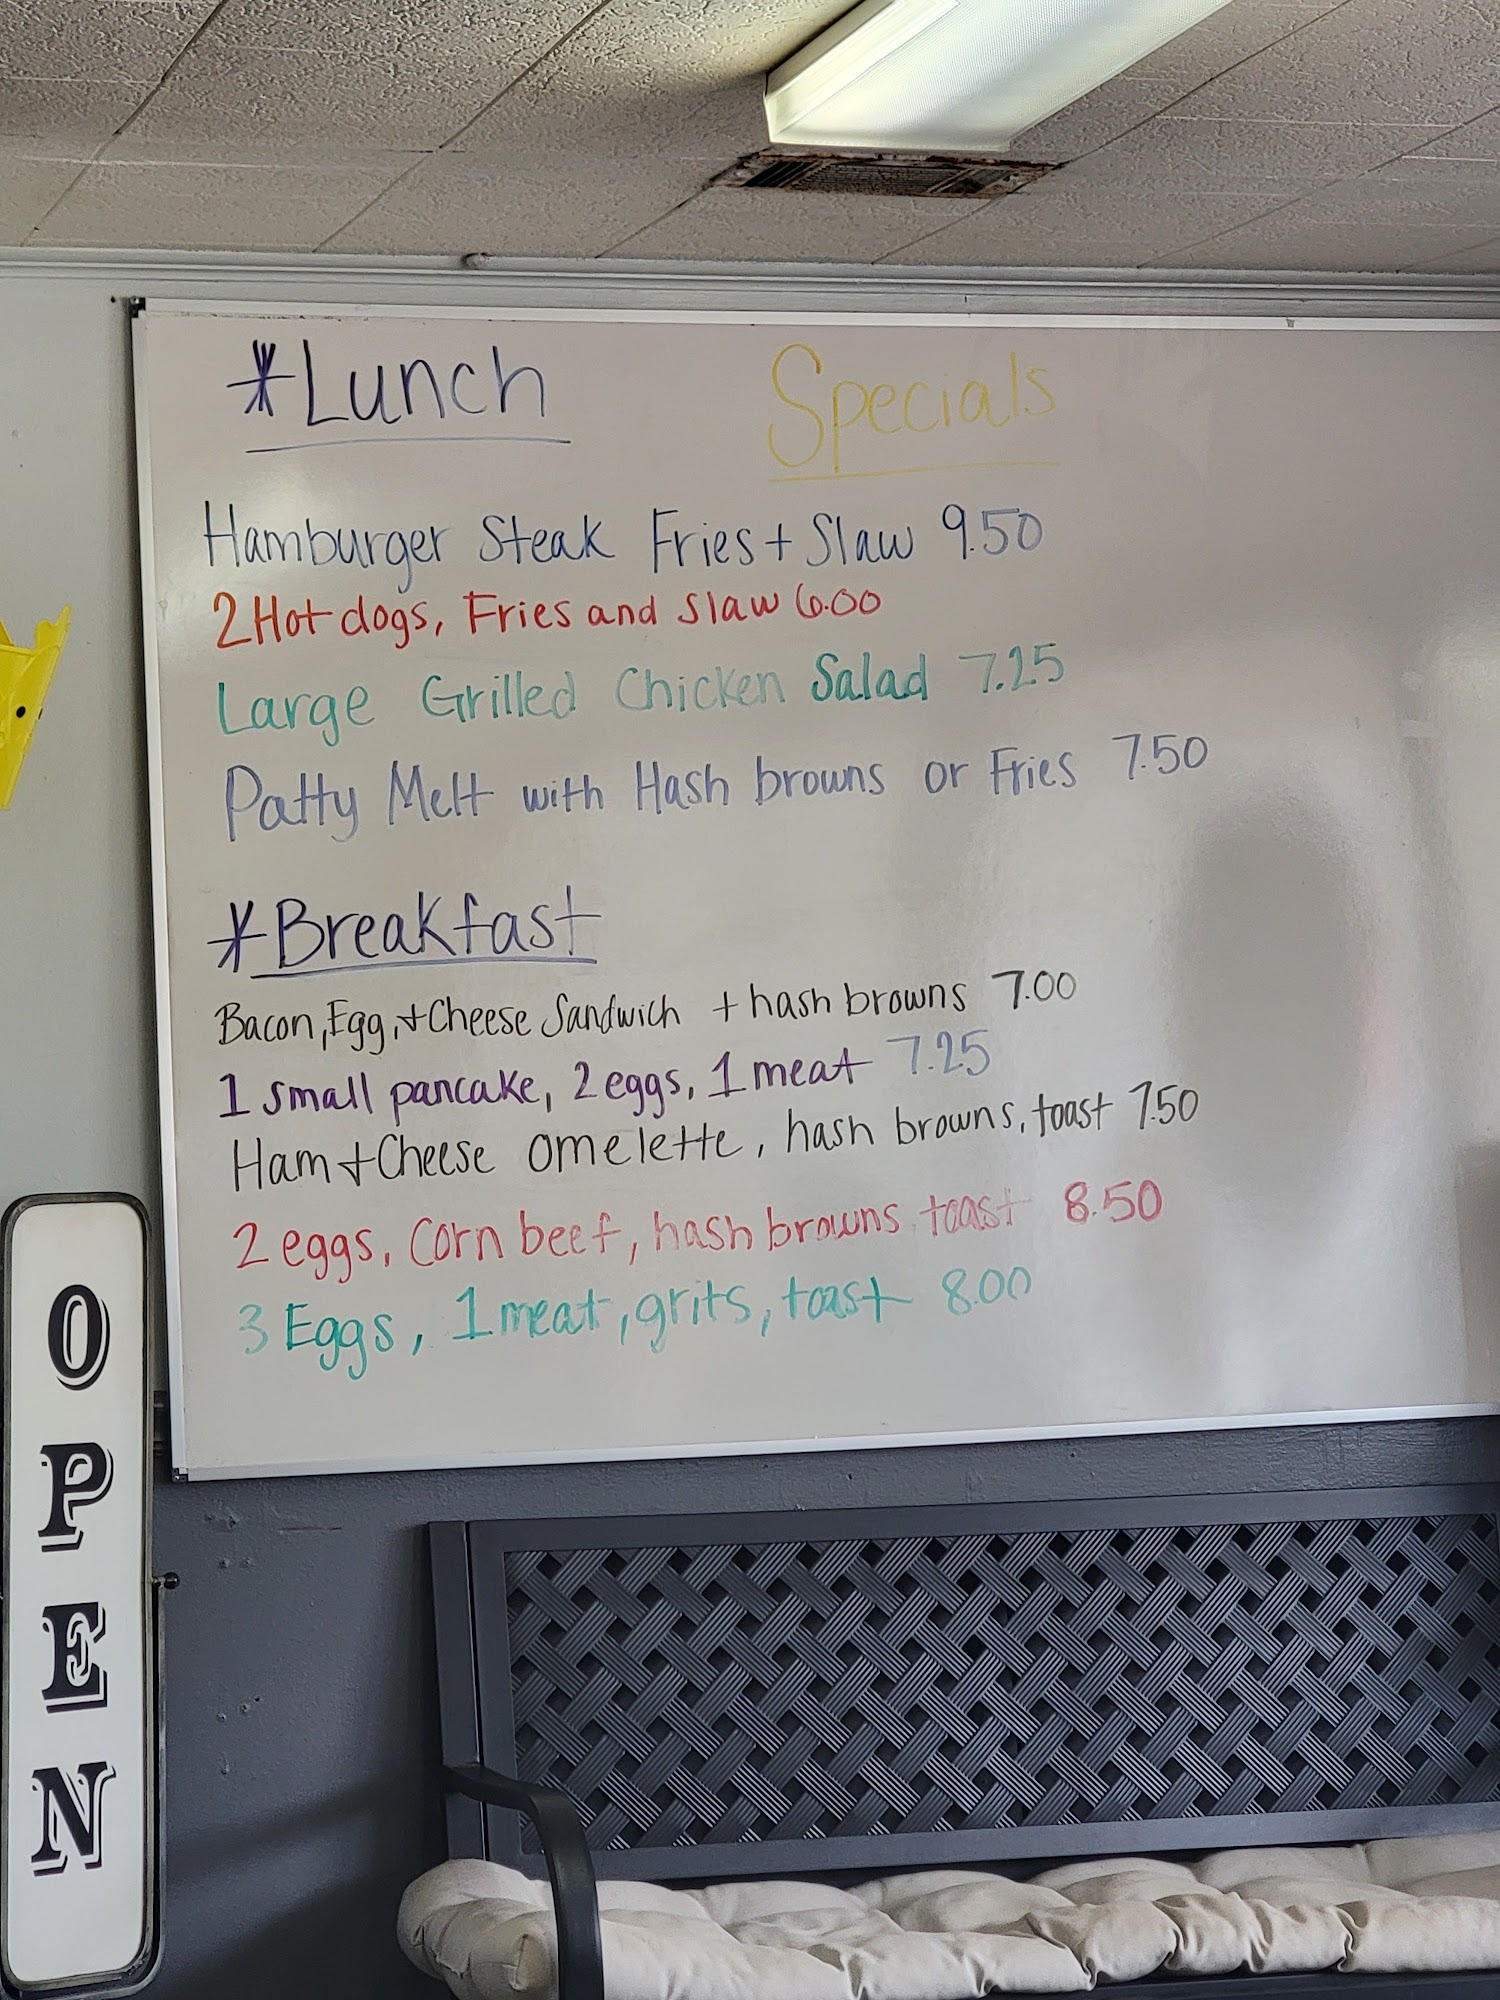 *Lunch Specials
Hamburger Steak Fries + Slaw 9.50
2 Hot dogs, Fries and Slaw 6.00
Large Grilled Chicken Salad 7.25
Patty Melt with Hash browns or Fries 7.50
*Breakfast
Bacon, Egg, + Cheese Sandwich + hash browns 7.00
1 small pancake, 2 eggs, 1 meat 7.25
Ham + Cheese omelette, hash browns, toast 7.50
2 eggs, Corn beef, hash browns toast 8.50
3 Eggs, 1 meat, grits, toast 8.00
OPEN